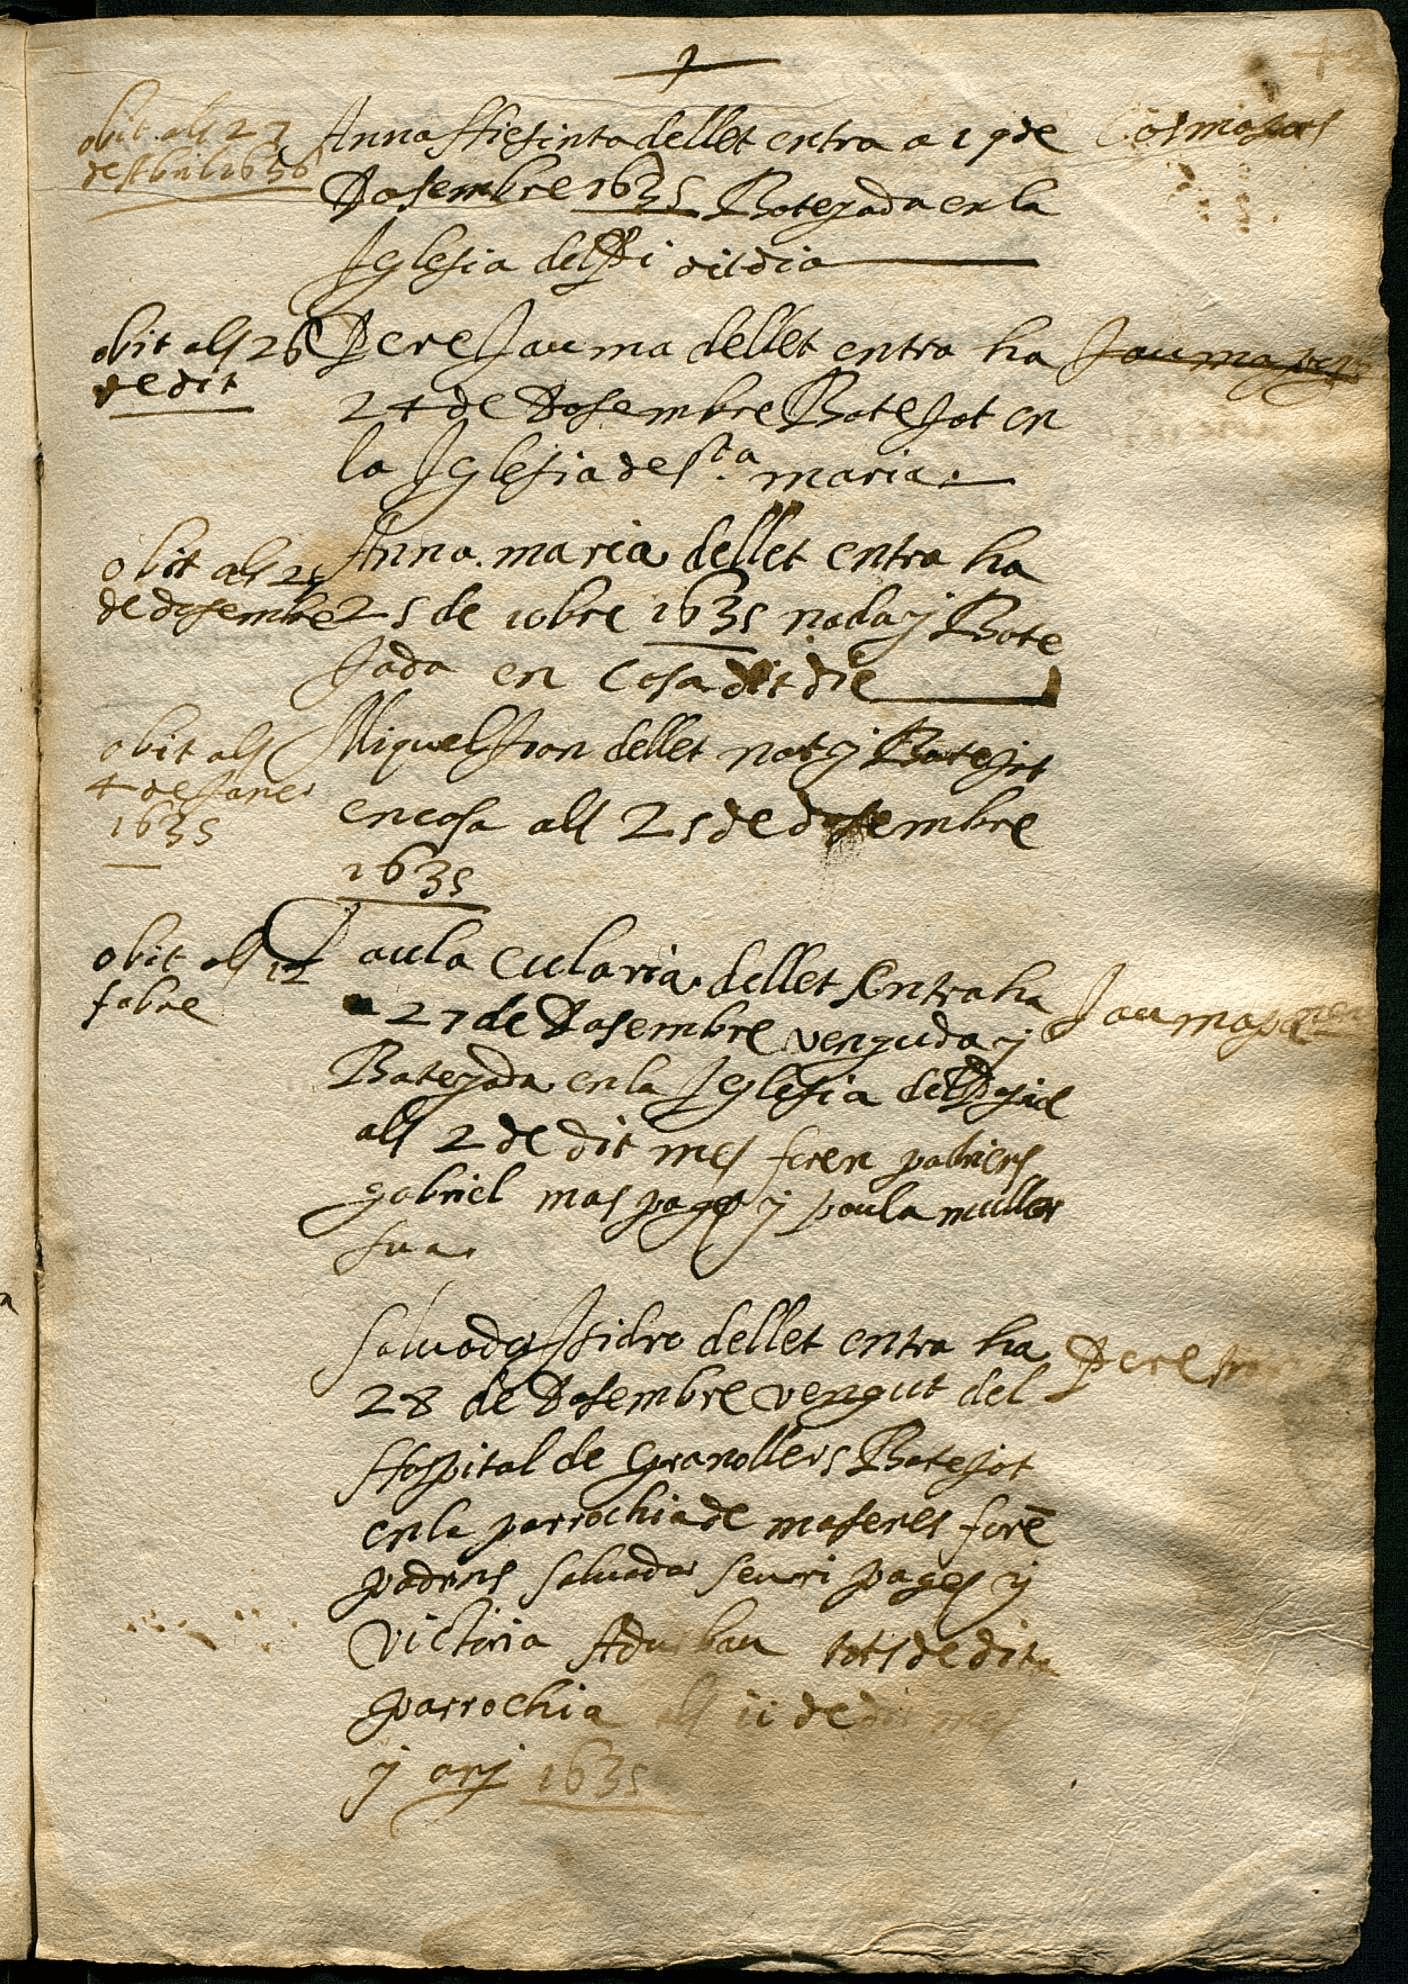 obit als 27
de Abril 1636
Anna Hiesinta dellet entra a 19 de
Dosembre 1635 Botejada en la
Iglesia del Pi dit dia
obit als 26
de dit
Pere Jauma dellet entra ha
24 de Dosembre Botejat en
la Iglesia de Sta. maria.
obit als 25
de desembre
Anna. maria dellet entra ha
25 de 10bre 1635 nada y Bote
jada en Casa dit die
obit als
4 de Janer
1635
Miquel Joan dellet nat y Batejat
en casa als 25 de desembre
1635
obit als 12
fabre
Paula eularia dellet Entra ha
27 de Dasembre venguda y
Batejada en la Iglesia del
als 2 de dit mes foren padrins
gabriel mas pages y paula muller
sua.
Jauma
Salvador Isidro dellet entra ha
28 de Dosembre vengut del
Hospital de Granollers Batejat
en la parrochia de maseres forē
padrins salvador seuri pages y
victoria tots de dita
parrochia als ii de dit mes
y any 1635
Pere